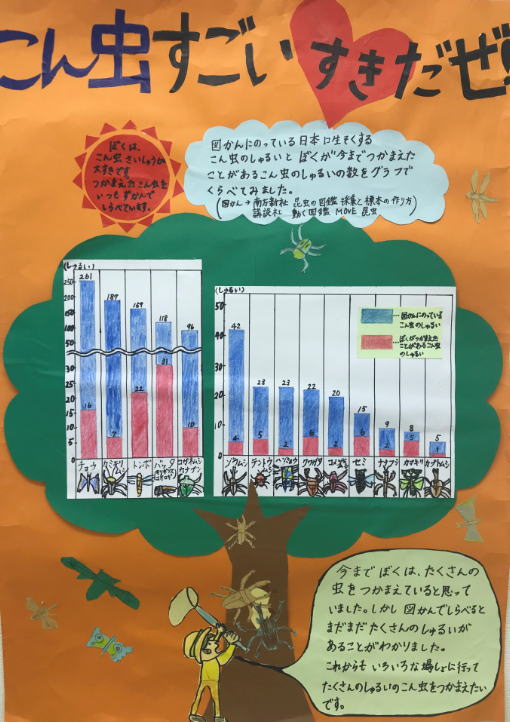 こん虫すごい すきだぜ!
ぼくは、
こん虫さいしゅうが
大すきです。
つかまえたこん虫を
いつもずかんで
しらべています。
図かんにのっている日本に生そくする
こん虫のしゅるいと ぼくが今までつかまえた
ことがあるこん虫のしゅるいの数をグラフで
くらべてみました。
(図かん→南方新社 昆虫の図鑑 採集と標本の作り方
講談社 動く図鑑 MOVE 昆虫)
(しゅるい)
261
189
169
118
96
250
200
150
100
50
35
30
25
20
15
10
5
0
16
7
22
31
10
チョウ
カミキリムシ
トンボ
バッタ
コガネムシ
カナブン
(しゅるい)
50
40
30
20
10
0
図かんにのっている
こん虫のしゅるい
ぼくがつかまえた
ことがあるこん虫
のしゅるい
42
23
23
22
20
15
9
8
5
4
5
6
6
5
ゾウムシ
テントウムシ
ハンミョウ
クワガタ
コメツキ
セミ
ナナフシ
カマキリ
カブトムシ
今までぼくは、たくさんの
虫をつかまえていると思って
いました。しかし図かんでしらべると
まだまだたくさんのしゅるいが
あることがわかりました。
これからもいろいろな場しょに行って
たくさんのしゅるいのこん虫をつかまえたい
です。